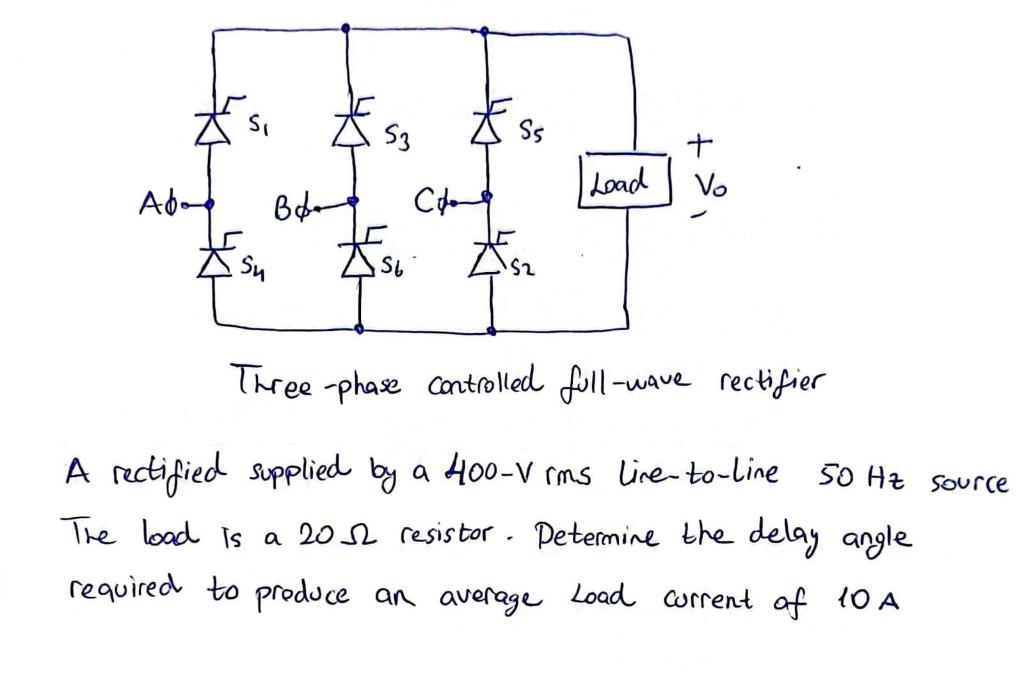 S1 S3 S5
+
Load Vo
-
Aϕ Bϕ Cϕ
S4 S6 S2
Three-phase controlled full-wave rectifier
A rectified supplied by a 400-V rms line-to-line 50 Hz source
The load is a 20Ω resistor. Determine the delay angle
required to produce an average Load current of 10 A